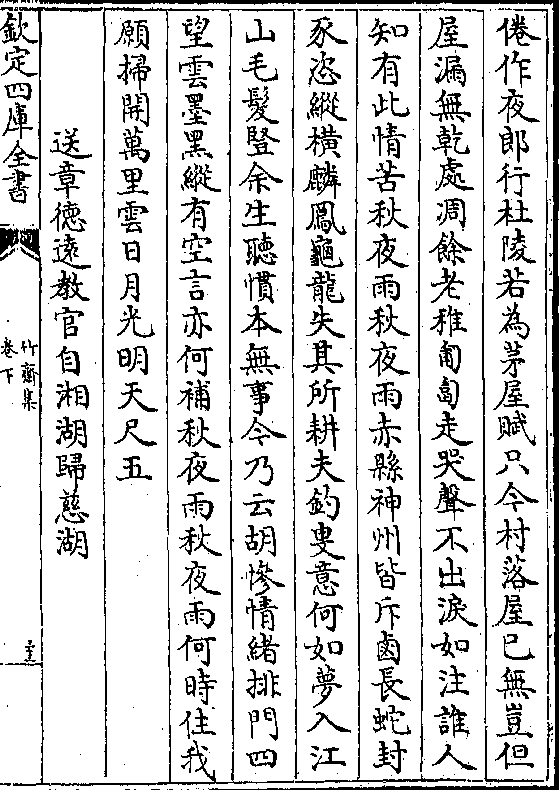 倦作夜郎行杜陵若為茅屋賦只今村落屋已無豈但
屋漏無乾處凋餘老稚匍匐走哭聲不出淚如注誰人
知有此情苦秋夜雨秋夜雨赤縣神州皆斥鹵長蛇封
豕恣縱橫麟鳳龜龍失其所耕夫釣叟意何如夢入江
山毛髮豎余生聽慣本無事今乃云胡慘情緒排門四
望雲墨黑縱有空言亦何補秋夜雨秋夜雨何時住我
願掃開萬里雲日月光明天尺五
送章德遠教官自湘湖歸慈湖
欽定四庫全書
竹齋集
卷下